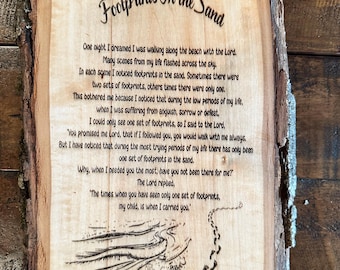 Footprints In the Sand
One night I dreamed I was walking along the beach with the Lord.
Many scenes from my life flashed across the sky.
In each scene I noticed footprints in the sand. Sometimes there were
two sets of footprints, others times there were only one.
This bothered me because I noticed that during the low periods of my life,
when I was suffering from anguish, sorrow or defeat,
I could only see one set of footprints, so I said to the Lord,
You promised me Lord, that if I followed you, you would walk with me always.
But I have noticed that during the most trying periods of my life there has only been
one set of footprints in the sand.
Why, when I needed you the most, have you not been there for me?"
The Lord replied,
"The times when you have seen only one set of footprints,
my child, is when I carried you."